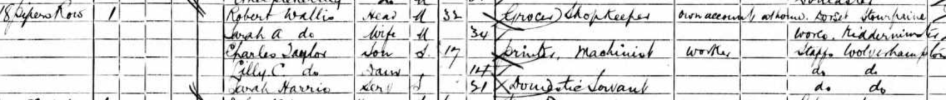 18 Pipers Row 1 Robert Wallis Head M 32 (Grocer) Shopkeeper own account at home Dorset Stourpaine
Sarah A do Wife M 34 Worcs. Kidderminster
Charles Taylor Son S 17 Printer, Machinist worker Staffs Wolverhampton
Lilly C. do Daur 14 do do
Sarah Harris Serv S 21 Domestic Servant do do